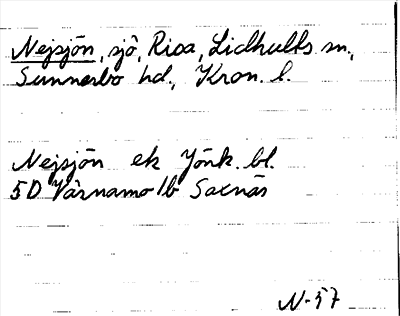 Nejsjön, sjö, Rioa, Lidhults sn,
Sunnerbo hd., Kron. l.
Nejsjön ek Jönk. bl.
5D Värnamo 1b Saxnäs
N-57